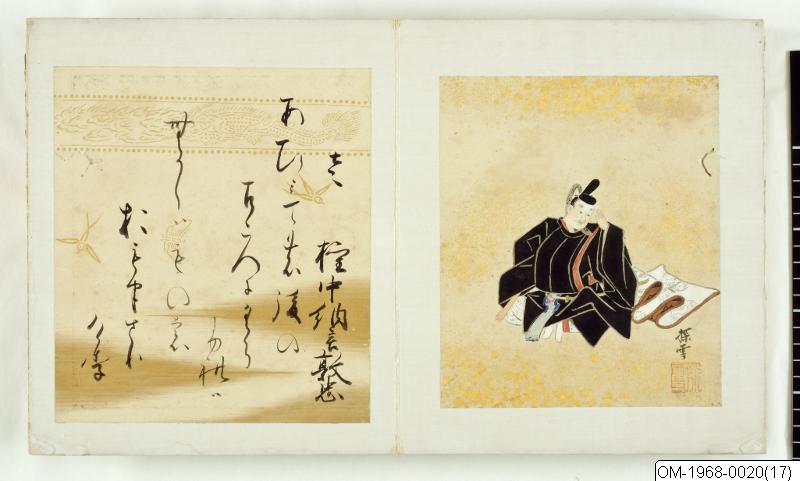 左 權中納言敦忠
あひみての後の
こゝろにくら
ふれは
むかしハものを
おもはさり
けり
探雪
OM-1968-0020(17)